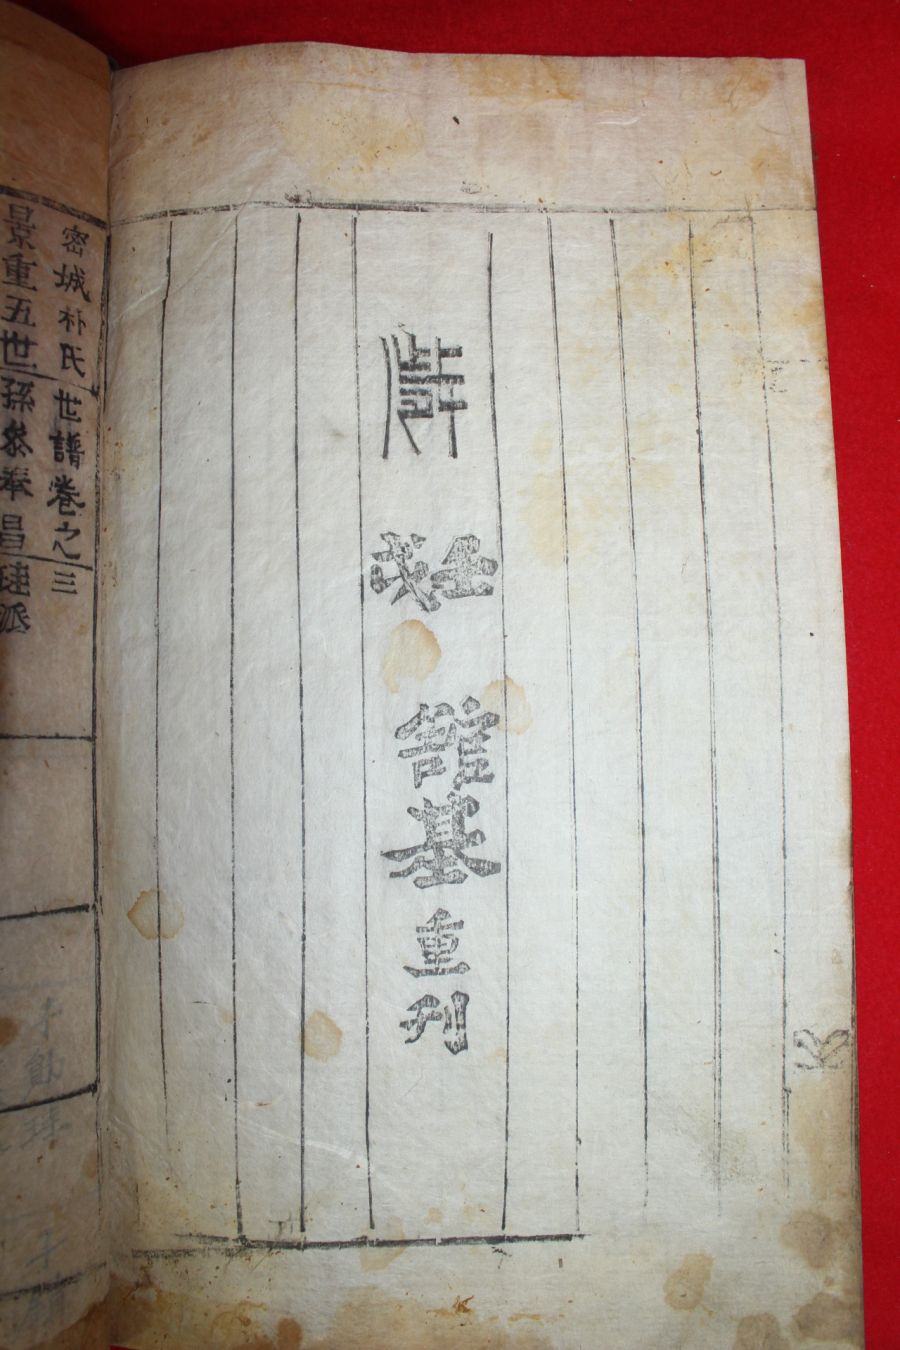 壬戌
基重刊
密城朴氏世譜卷之三
景重五世孫參奉昌珪派